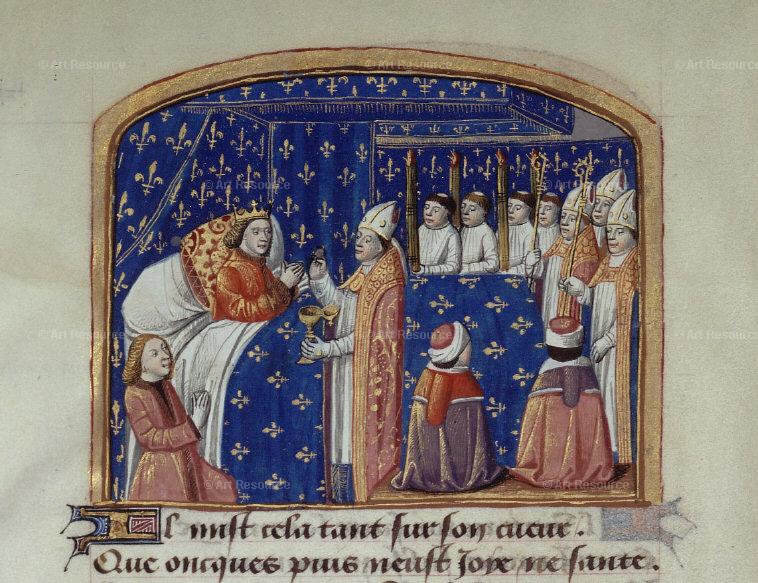 © Art Resource © Art Resource © Art Resource
© Art Resource © Art Resource
© Art Resource © Art Resource © Art Resource
© Art Resource © Art Resource
Il mist cela tant sur son cueur.
Que oncques puis neust Joye ne sante.